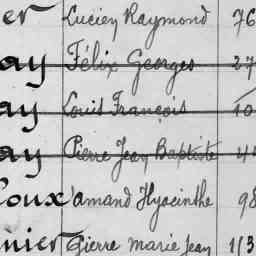 er Lucien Raymond 76
ay Félix Georges 27
ay Louis François 10
ay Pierre Jean Baptiste 44
oux Amand Hyacinthe 98
nier Pierre Marie Jean 113